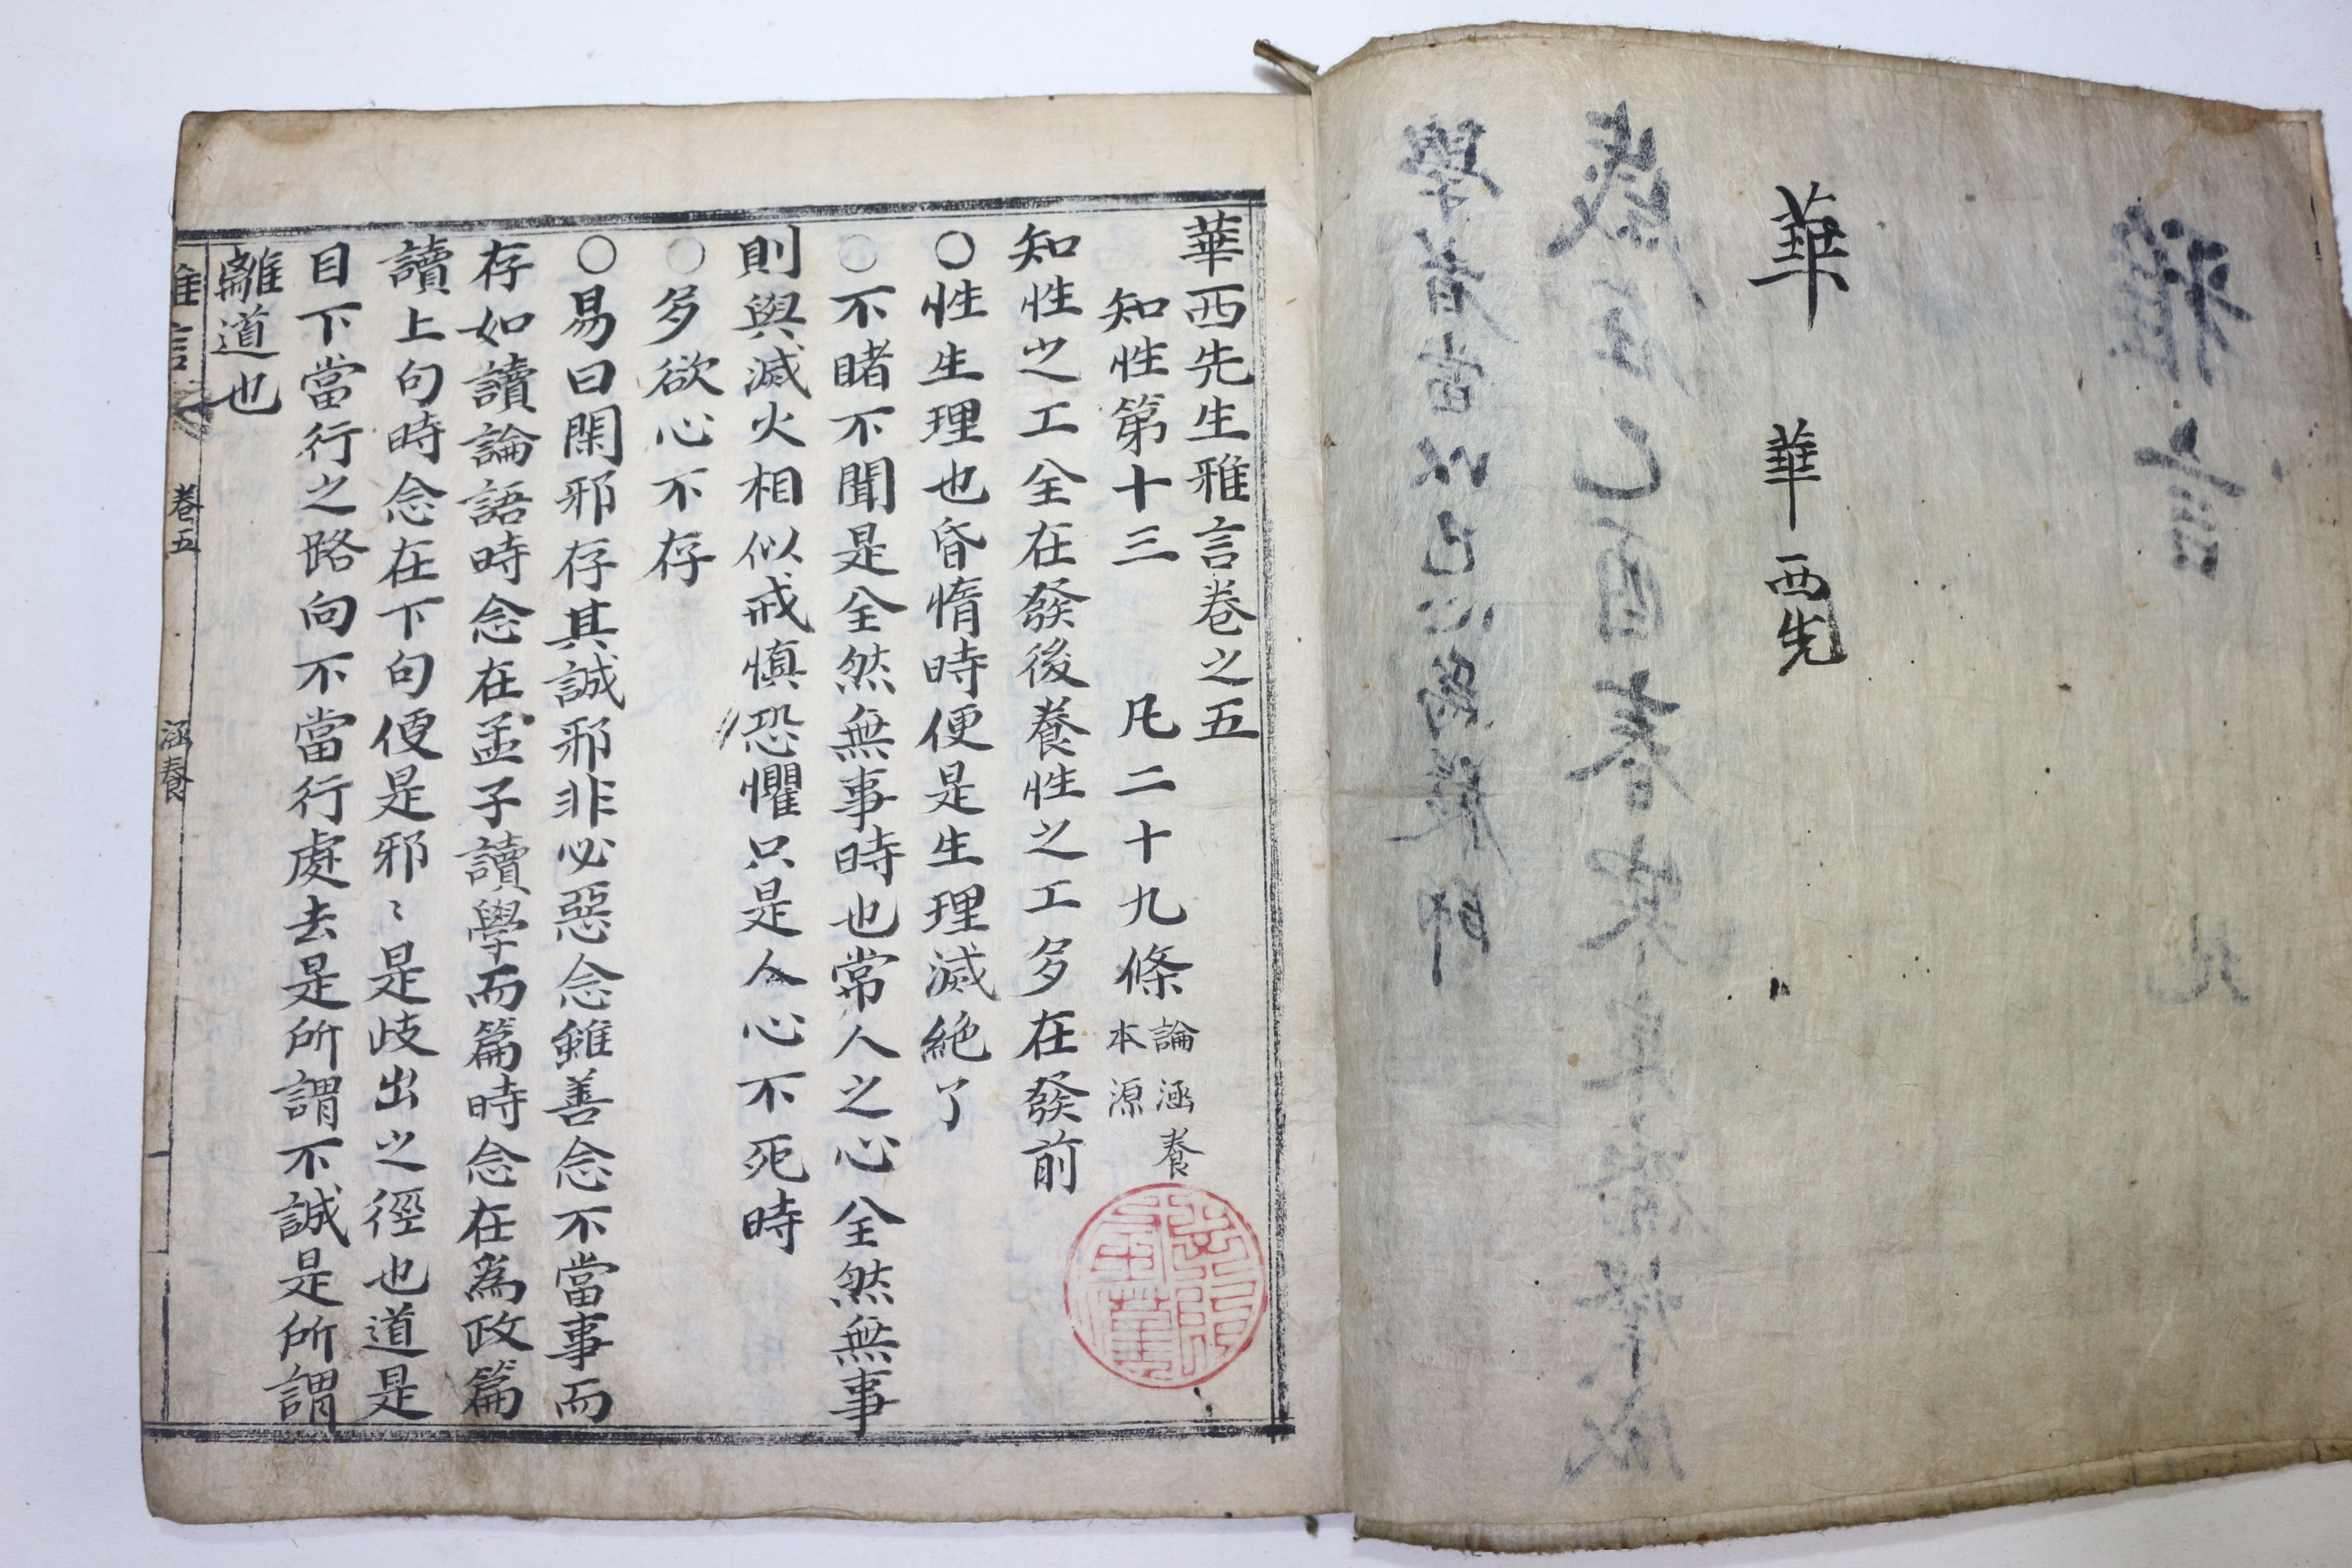 雅言 地
華 華西先
歲在己酉春寒 成
學者當以己心爲嚴師
華西先生雅言卷之五
知性第十三 凡二十九條 論涵養
本源
知性之工全在發後養性之工多在發前
○性生理也昏惰時便是生理滅絶了
○不睹不聞是全然無事時也常人之心全然無事
則與滅火相似戒愼恐懼只是人心不死時
○多欲心不存
○易曰閑邪存其誠邪非必惡念雖善念不當事而
存如讀論語時念在孟子讀學而篇時念在爲政篇
讀上句時念在下句便是邪〻是歧出之徑也道是
目下當行之路向不當行處去是所謂不誠是所謂
離道也
雅言 卷五 涵養